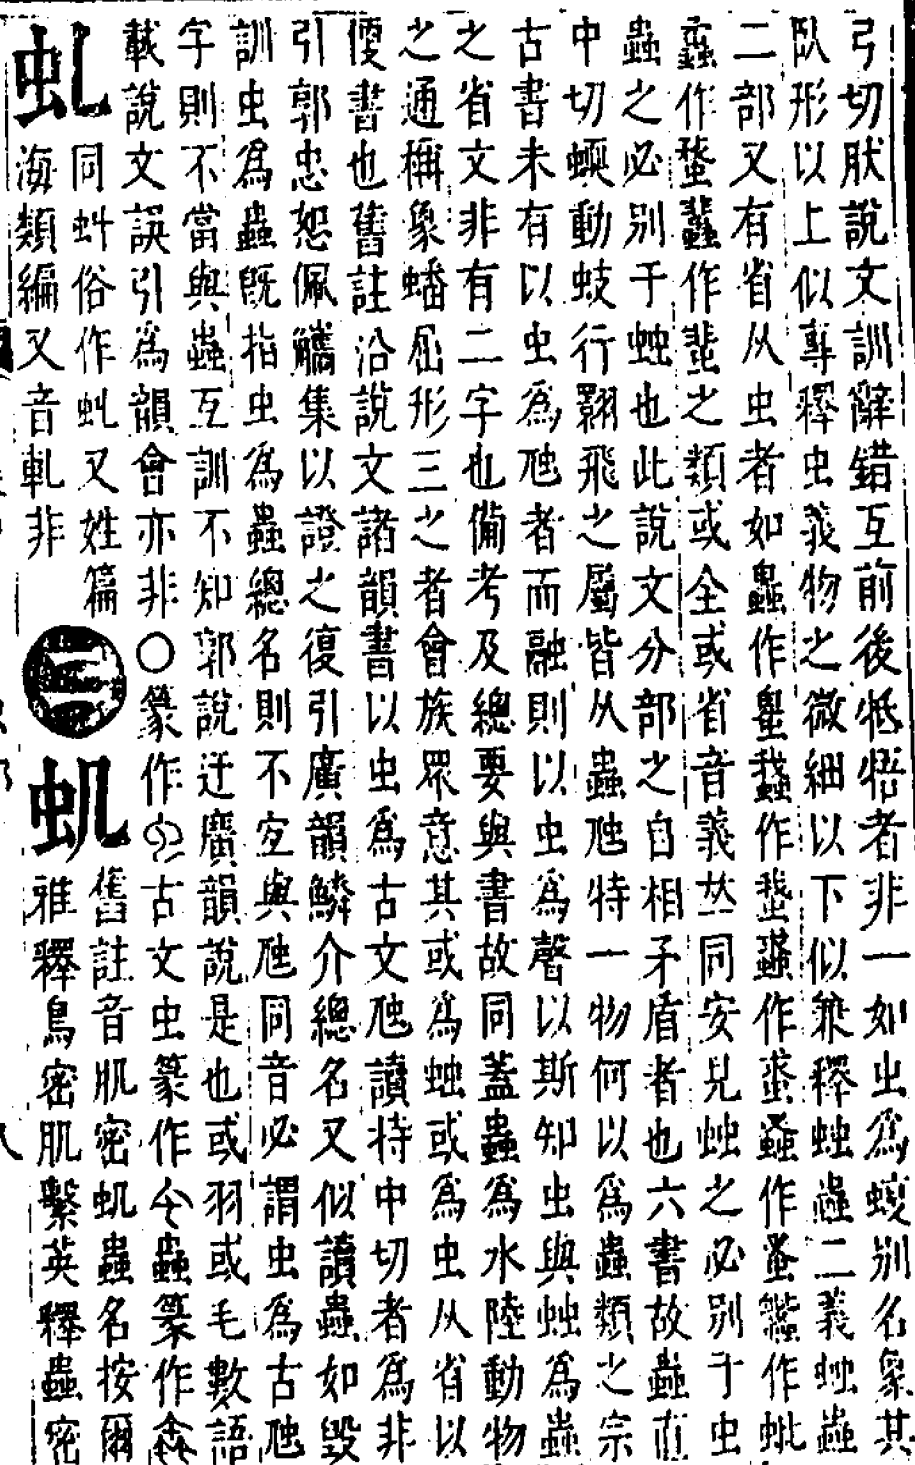 弓切肰說文訓辭錯互前後牴牾者非一如虫為蝮別名象其
臥形以上似專釋虫義物之微細以下似兼釋䖵蟲二義䖵蟲
二部又有省从虫者如蟁作
作蜚之類或全或省音義𠀤同安見䖵之必別于虫
蟲之必別于䖵也此說文分部之自相矛盾者也六書故蟲直
中切蝡動蚑行翾飛之屬皆从蟲虺特一物何以為蟲類之宗
古書未有以虫為虺者而融則以虫為聲以斯知虫與䖵為蟲
之省文非有二字也備考及總要與書故同蓋蟲為水陸動物
之通稱象蟠屈形三之者會族眾意其或為䖵或為虫从省以
便書也舊註沿說文諸韻書以虫為古文虺讀持中切者為非
引郭忠恕佩觿集以證之復引廣韻鱗介總名又似讀蟲如毀
訓虫為蟲旣指虫為蟲總名則不宐與虺同音必謂虫為古虺
字則不當與蟲互訓不知郭說迂廣韻說是也或羽或毛數語
載說文誤引為韻會亦非○篆作 古文虫篆作 蟲篆作
虬
同虯俗作虬又姓篇
海類編又音軋非
二
虮
舊註音肌密虮蟲名按爾
雅釋鳥密肌繫英釋蟲密